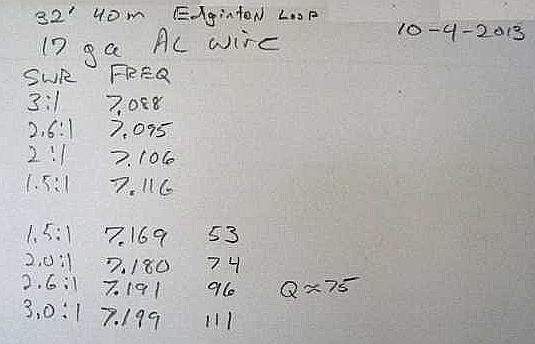 32' 40m Edginton Loop
10-4-2013
17 ga AL wire
SWR FREQ
3:1 7.088
2.6:1 7.095
2:1 7.106
1.5:1 7.116
1.5:1 7.169 53
2.0:1 7.180 74
2.6:1 7.191 96 Q≈75
3.0:1 7.199 111